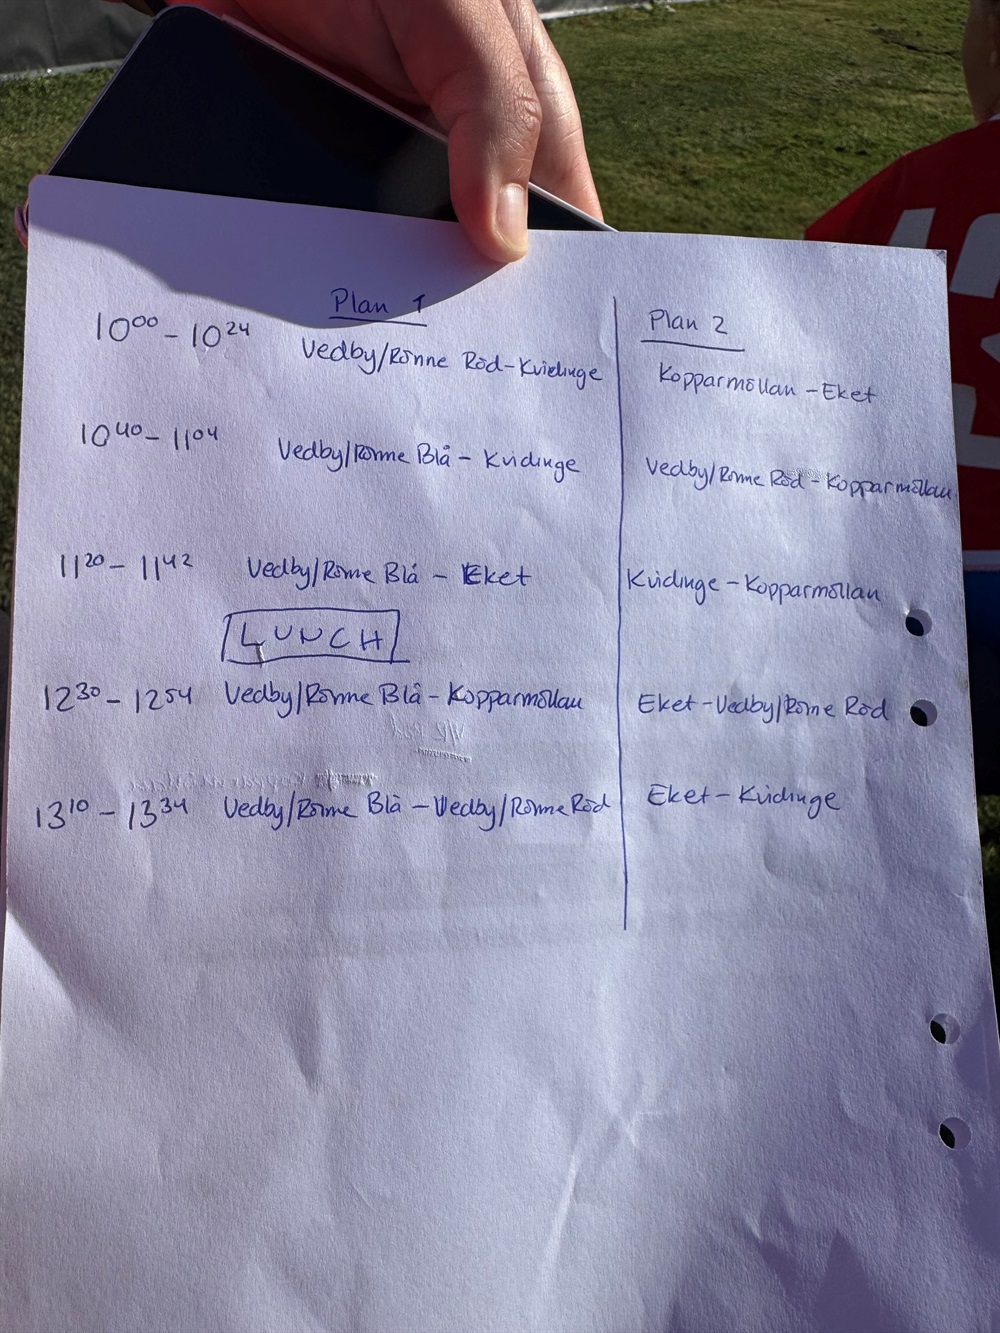 Plan 1
Plan 2
10⁰⁰ - 10²⁴ Vedby/Rönne Röd - Kvidinge
Kopparmöllan - Eket
10⁴⁰ - 11⁰⁴ Vedby/Rönne Blå - Kvidinge
Vedby/Rönne Röd - Kopparmöllan
11²⁰ - 11⁴² Vedby/Rönne Blå - Eket
Kvidinge - Kopparmöllan
LUNCH
12³⁰ - 12⁵⁴ Vedby/Rönne Blå - Kopparmöllan
Eket - Vedby/Rönne Röd
13¹⁰ - 13³⁴ Vedby/Rönne Blå - Vedby/Rönne Röd
Eket - Kvidinge